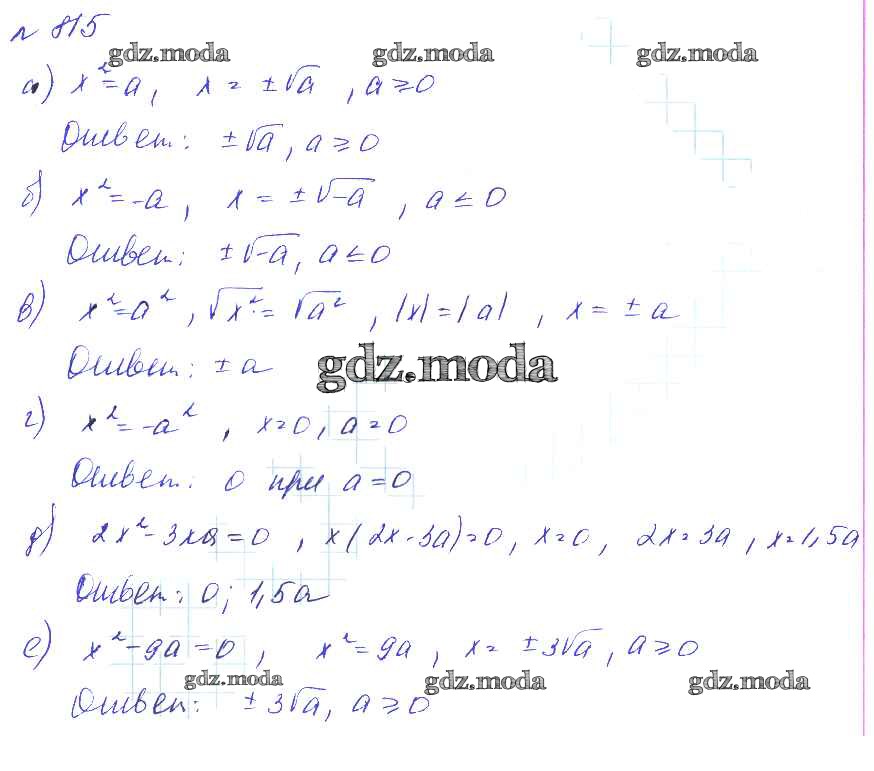 № 815
gdz.moda gdz.moda gdz.moda
а) x²=a, x = ±√a, a ≥ 0
Ответ: ±√a, a ≥ 0
б) x² = -a, x = ±√-a, a ≤ 0
Ответ: ±√-a, a ≤ 0
в) x²=a², √x² = √a², |x| = |a|, x = ±a
Ответ: ±a
gdz.moda
г) x² = -a², x=0, a=0
Ответ: 0 при a=0
д) 2x² - 3xa = 0, x(2x-3a)=0, x=0, 2x=3a, x=1,5a
Ответ: 0; 1,5a
е) x² - 9a = 0, x² = 9a, x = ±3√a, a ≥ 0
gdz.moda gdz.moda gdz.moda
Ответ: ±3√a, a ≥ 0